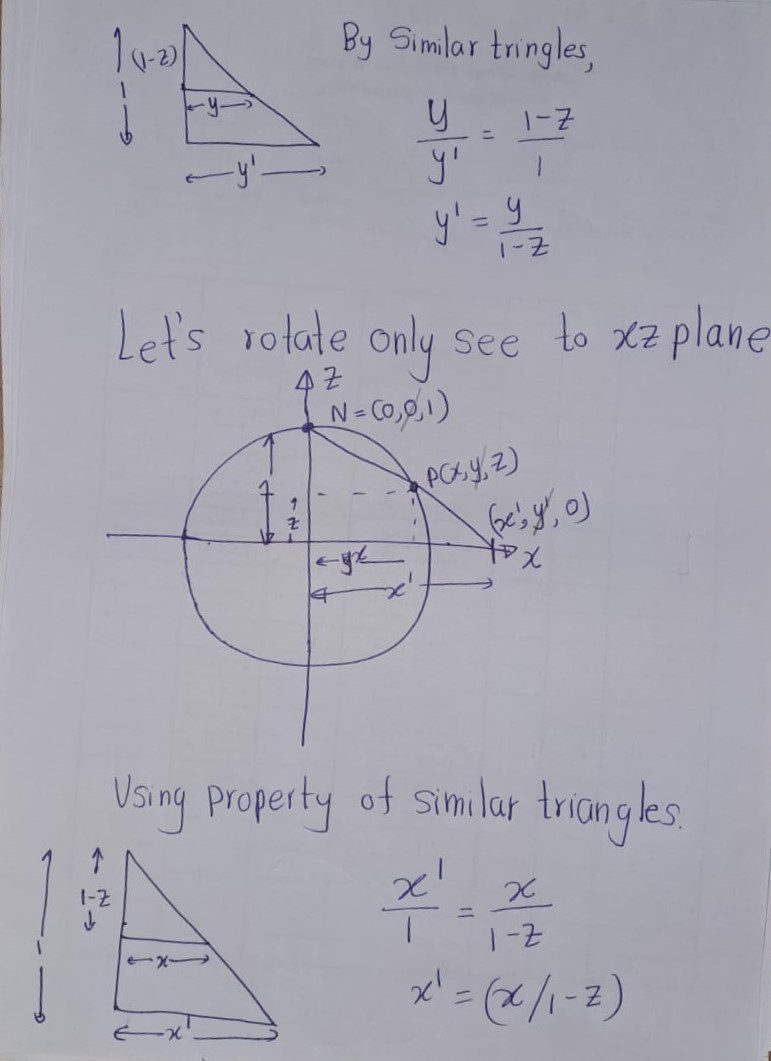 By Similar tringles,
(1-z)
1
y
y'
y/y' = 1-z/1
y' = y/1-z
Let's rotate only see to xz plane
z
N = (0,0,1)
P(x,y,z)
(x', y', 0)
1
z
x
x
x'
Using property of similar triangles.
1-z
1
x
x'
x'/1 = x/1-z
x' = (x/1-z)